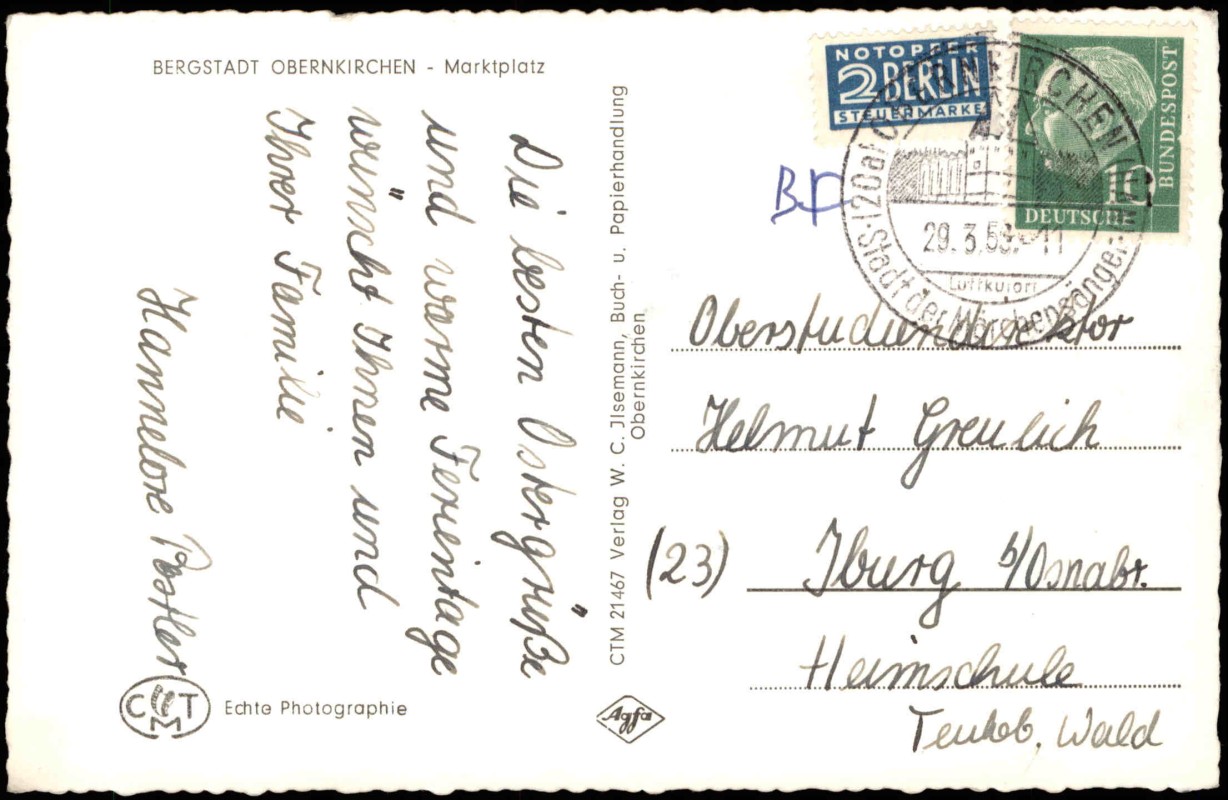 BERGSTADT OBERNKIRCHEN - Marktplatz
Die besten Ostergrüße
und warme Ferientage
wünscht Ihnen und
Ihrer Familie
Hannelore Postler
CMT
Echte Photographie
CTM 21467 Verlag W. C. Jlsemann, Buch- u. Papierhandlung
Obernkirchen
Agfa
NOTOPFER
2 BERLIN
STEUERMARKE
DEUTSCHE
BUNDESPOST
10
(20a) OBERNKIRCHEN
29.3.59.-11
Luftkurort
Stadt der Märchensänger
BP
Oberstudiendirektor
Helmut Greulich
(23) Iburg b/Osnabr.
Heimschule
Teutob. Wald